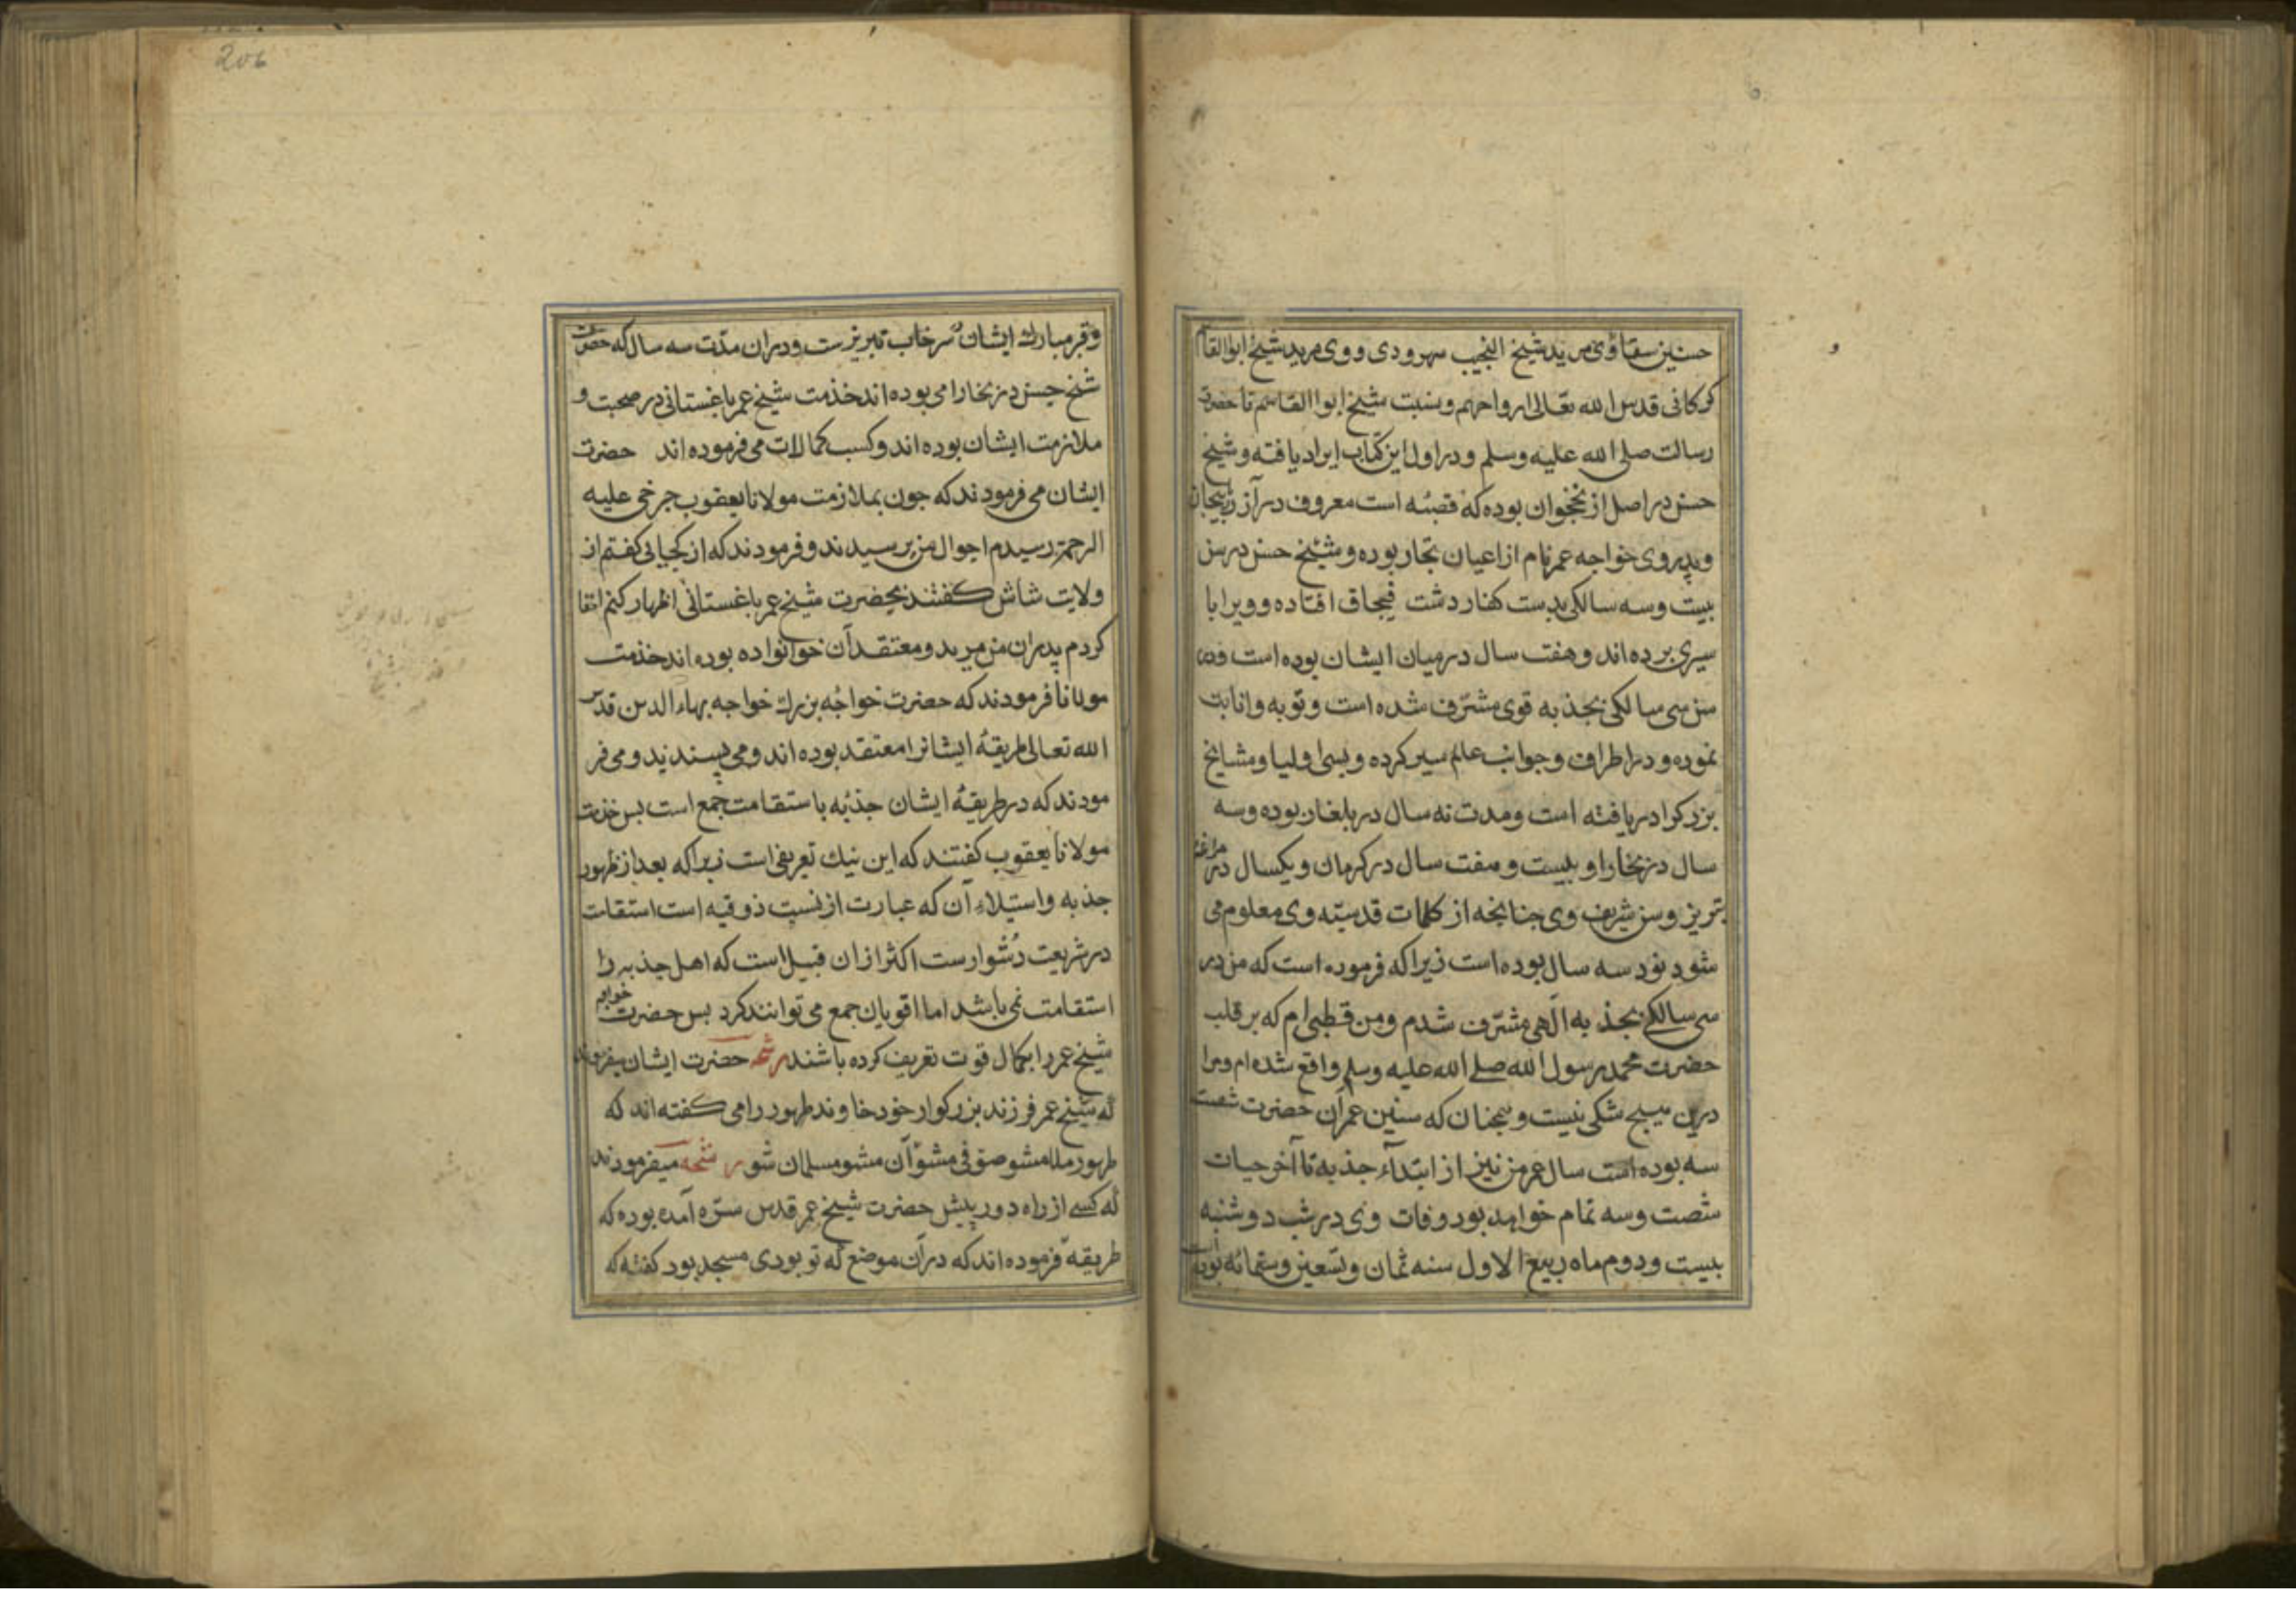 حسنین سقا وی مرید شیخ النجیب سهرودی و وی مرید شیخ ابوالقاسم
کرکانی قدس الله تعالی ارواحهم و نسبت شیخ ابوا القاسم تا حضرت
رسالت صلی الله علیه وسلم و در اول این کتاب ایراد یافته و شیخ
حسن در اصل از نخجوان بوده که قصبٔه است معروف در آزربیجان
و پدر وی خواجه عمر نام از اعیان تجار بوده و شیخ حسن در سن
بیت و سه سالکی بدست کفار دشت قبجاق افتاده و ویرا با
سیری برده اند و هفت سال در میان ایشان بوده است و در
سن سی سالکی بجذبه قوی مشرّف شده است و توبه و انابت
نموده و در اطراف و جوانب عالم سیر کرده و بسی اولیا و مشایخ
بزرکرا دریافته است و مدت نه سال در بلغار بوده و سه
سال در بخارا و بیست و هفت سال در کرمان و یکسال در مراغه
تبریز و سن شریف وی جنانجه از کلمات قدسیّه وی معلوم می
شود نود سه سال بوده است زیرا که فرموده است که من در
سی سالکی بجذبه الهی مشرّف شدم و من قطبی ام که بر قلب
حضرت محمد رسول الله صلی الله علیه وسلم واقع شده ام و مرا
درین هیچ شکی نیست و همجنان که سنین عمر آن حضرت شصت
سه بوده است سال عمر من نیز از ابتدآء جذبه تا آخر حیات
شصت و سه تمام خواهد بود وفات وی در شب دوشنبه
بیست و دوم ماه ربیع الاول سنه ثمان و تسعین و ستمائه بوده است
206
و قبر مبارک ایشان سرخاب تبریزست و در ان مدّت سه سال که حضرت
شیخ حسن در بخارا می بوده اند خذمت شیخ عمر باغستانی در صحبت و
ملازمت ایشان بوده اند و کسب کمالات می فرموده اند حضرت
ایشان می فرمودند که جون بملازمت مولانا یعقوب جرخی علیه
الرحمة رسیدم احوال من پرسیدند و فرمودند که از کجیانی کفتم از
ولایت شاش کفتند بحضرت شیخ عمر باغستانی اظهار کنم اتفا
کردم پدران من مرید و معتقد آن خوانواده بوده اند خذمت
مولانا فرمودند که حضرت خواجه بزرك خواجه بهاء الدین قدس
الله تعالی طریقهٔ ایشانرا معتقد بوده اند و می پسندیدند و می فر
مودند که در طریقهٔ ایشان جذبه با استقامت جمع است بس خذمت
مولانا یعقوب کفتند که این نیك تعریفی است زیرا که بعد از ظهور
جذبه و استیلاء آن که عبارت از نسبت ذوقیه است استقامت
در شریعت دُشوارست اکثر ازان قبیل است که اهل جذبه را
استقامت نمی باشد اما اقویان جمع می توانند کرد بس حضرت خواجه
شیخ عمر را بکمال قوت تعریف کرده باشند رشحه حضرت ایشان میفرمودند
که شیخ عمر فرزند بزرکوار خود خاوند طهور را می کفته اند که
طهور ملا مشو صوفی مشو آن مشو مسلمان شو رشحه میفرمودند
که کسے از راه دور پیش حضرت شیخ عمر قدس سرّه آمده بوده که
طریقه فرموده اند که در آن موضع که تو بودی مسجد بود کفته که